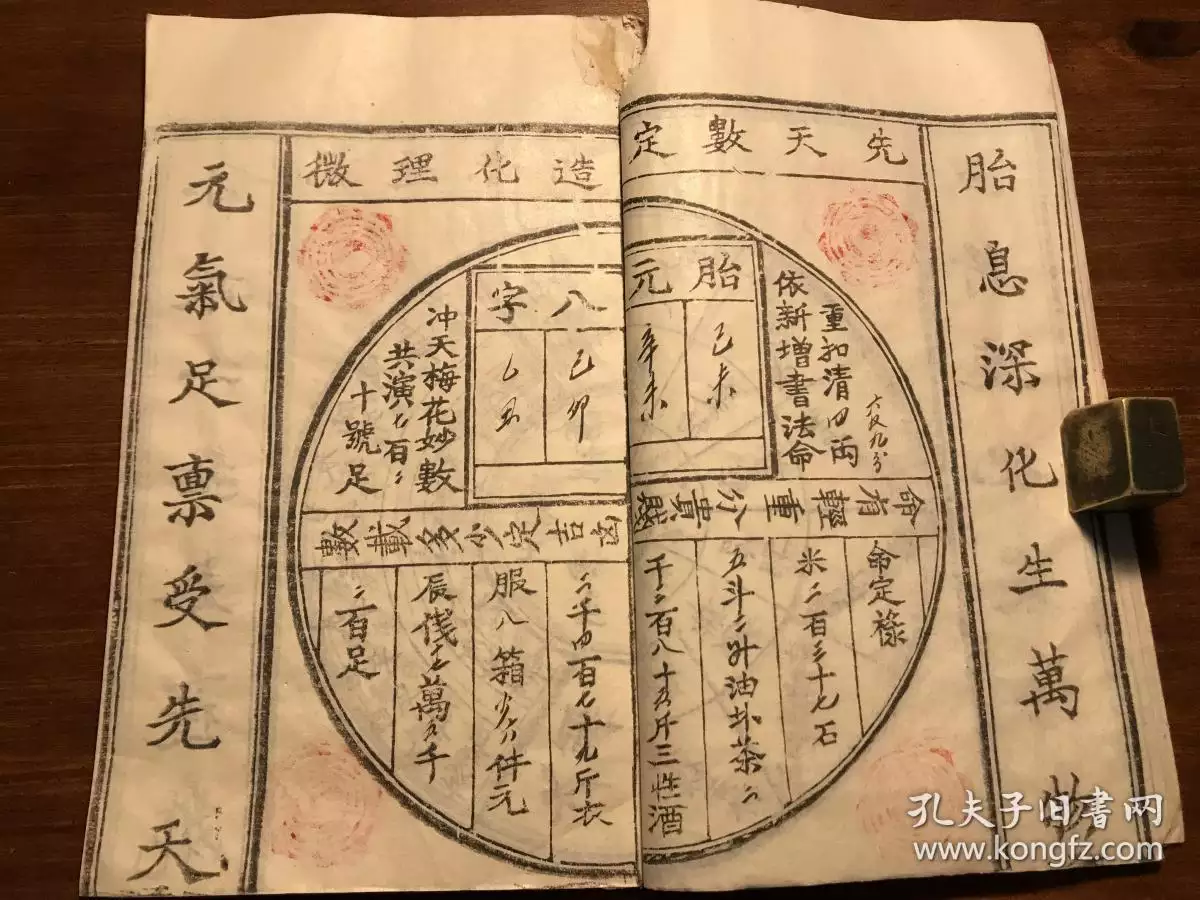 胎息深化生萬物
先天數定
造化理微
重扣清四両
依新增書法命
胎元
八字
己未
辛未
己卯
乙丑
冲天梅花妙數
共演七百
十號足
命有輕重分貴賤
數載多少定吉凶
命定祿
米二百三十七石
五斗二升油卦茶二
千二百八十五斤三牲酒
二千四百七十九斤衣
服八箱 件元
辰伐 萬五千
二百足
元氣足禀受先天
孔夫子旧书网
www.kongfz.com